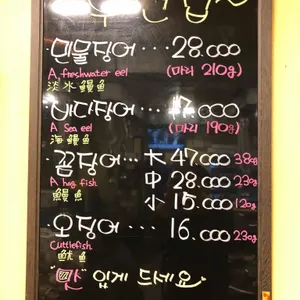 민물장어 ··· 28.000
A freshwater eel (마리 210g)
淡水鰻魚
바다장어 ··· 17.000
A Sea eel (마리 190g)
海鰻魚
꼼장어 ·· 大 47.000 38g
A hag fish 中 28.000 23g
鰻魚 小 15.000 12g
오징어 ··· 16.000 23g
Cuttlefish
魷魚
"맛" 있게 드세요